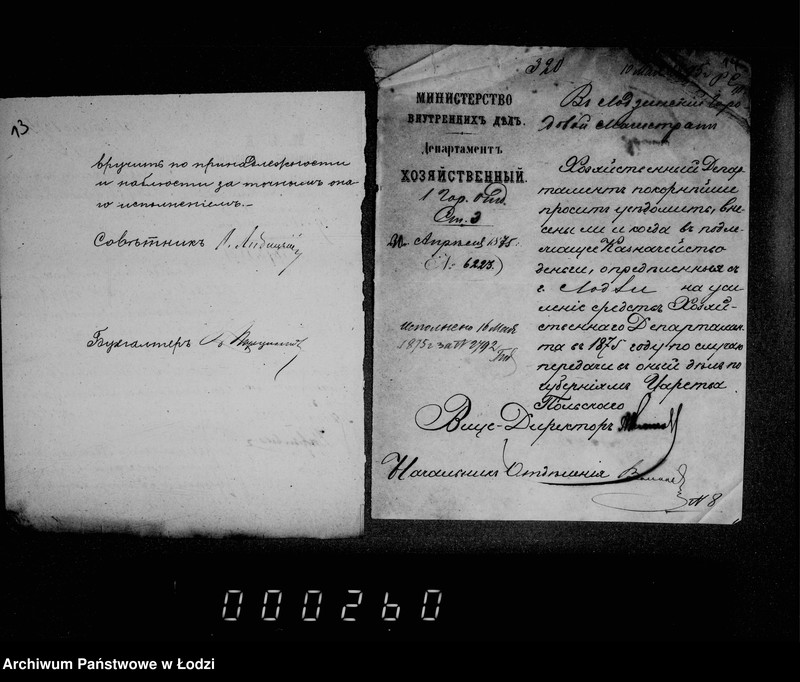 13
вручить по принадлежности
и наблюсти за точнымъ она-
го исполненіемъ.
Совѣтникъ
Бухгалтеръ
320
МИНИСТЕРСТВО
ВНУТРЕННИХЪ ДѢЛЪ.
Департаментъ
ХОЗЯЙСТВЕННЫЙ.
1 Гор. Отд.
Ст. 3
Апрѣля 1875.
№ 6227.
Исполнено 16 Мая
1875 г за № 2792
Въ Лодзинскій Горо-
довой Магистратъ
Хозяйственный Депар-
таментъ покорнѣйше
проситъ увѣдомить, вне-
сены ли и когда въ подле-
жащее Казначейство
деньги, опредѣленныя съ
г. Лодзи на уси-
леніе средствъ Хозяй-
ственнаго Департамен-
та въ 1875 году по случаю
передачи въ оный дѣлъ по
губерніямъ Царства
Польскаго
Вице-Директоръ
Начальникъ Отдѣленія
№ 8
000260
Archiwum Państwowe w Łodzi